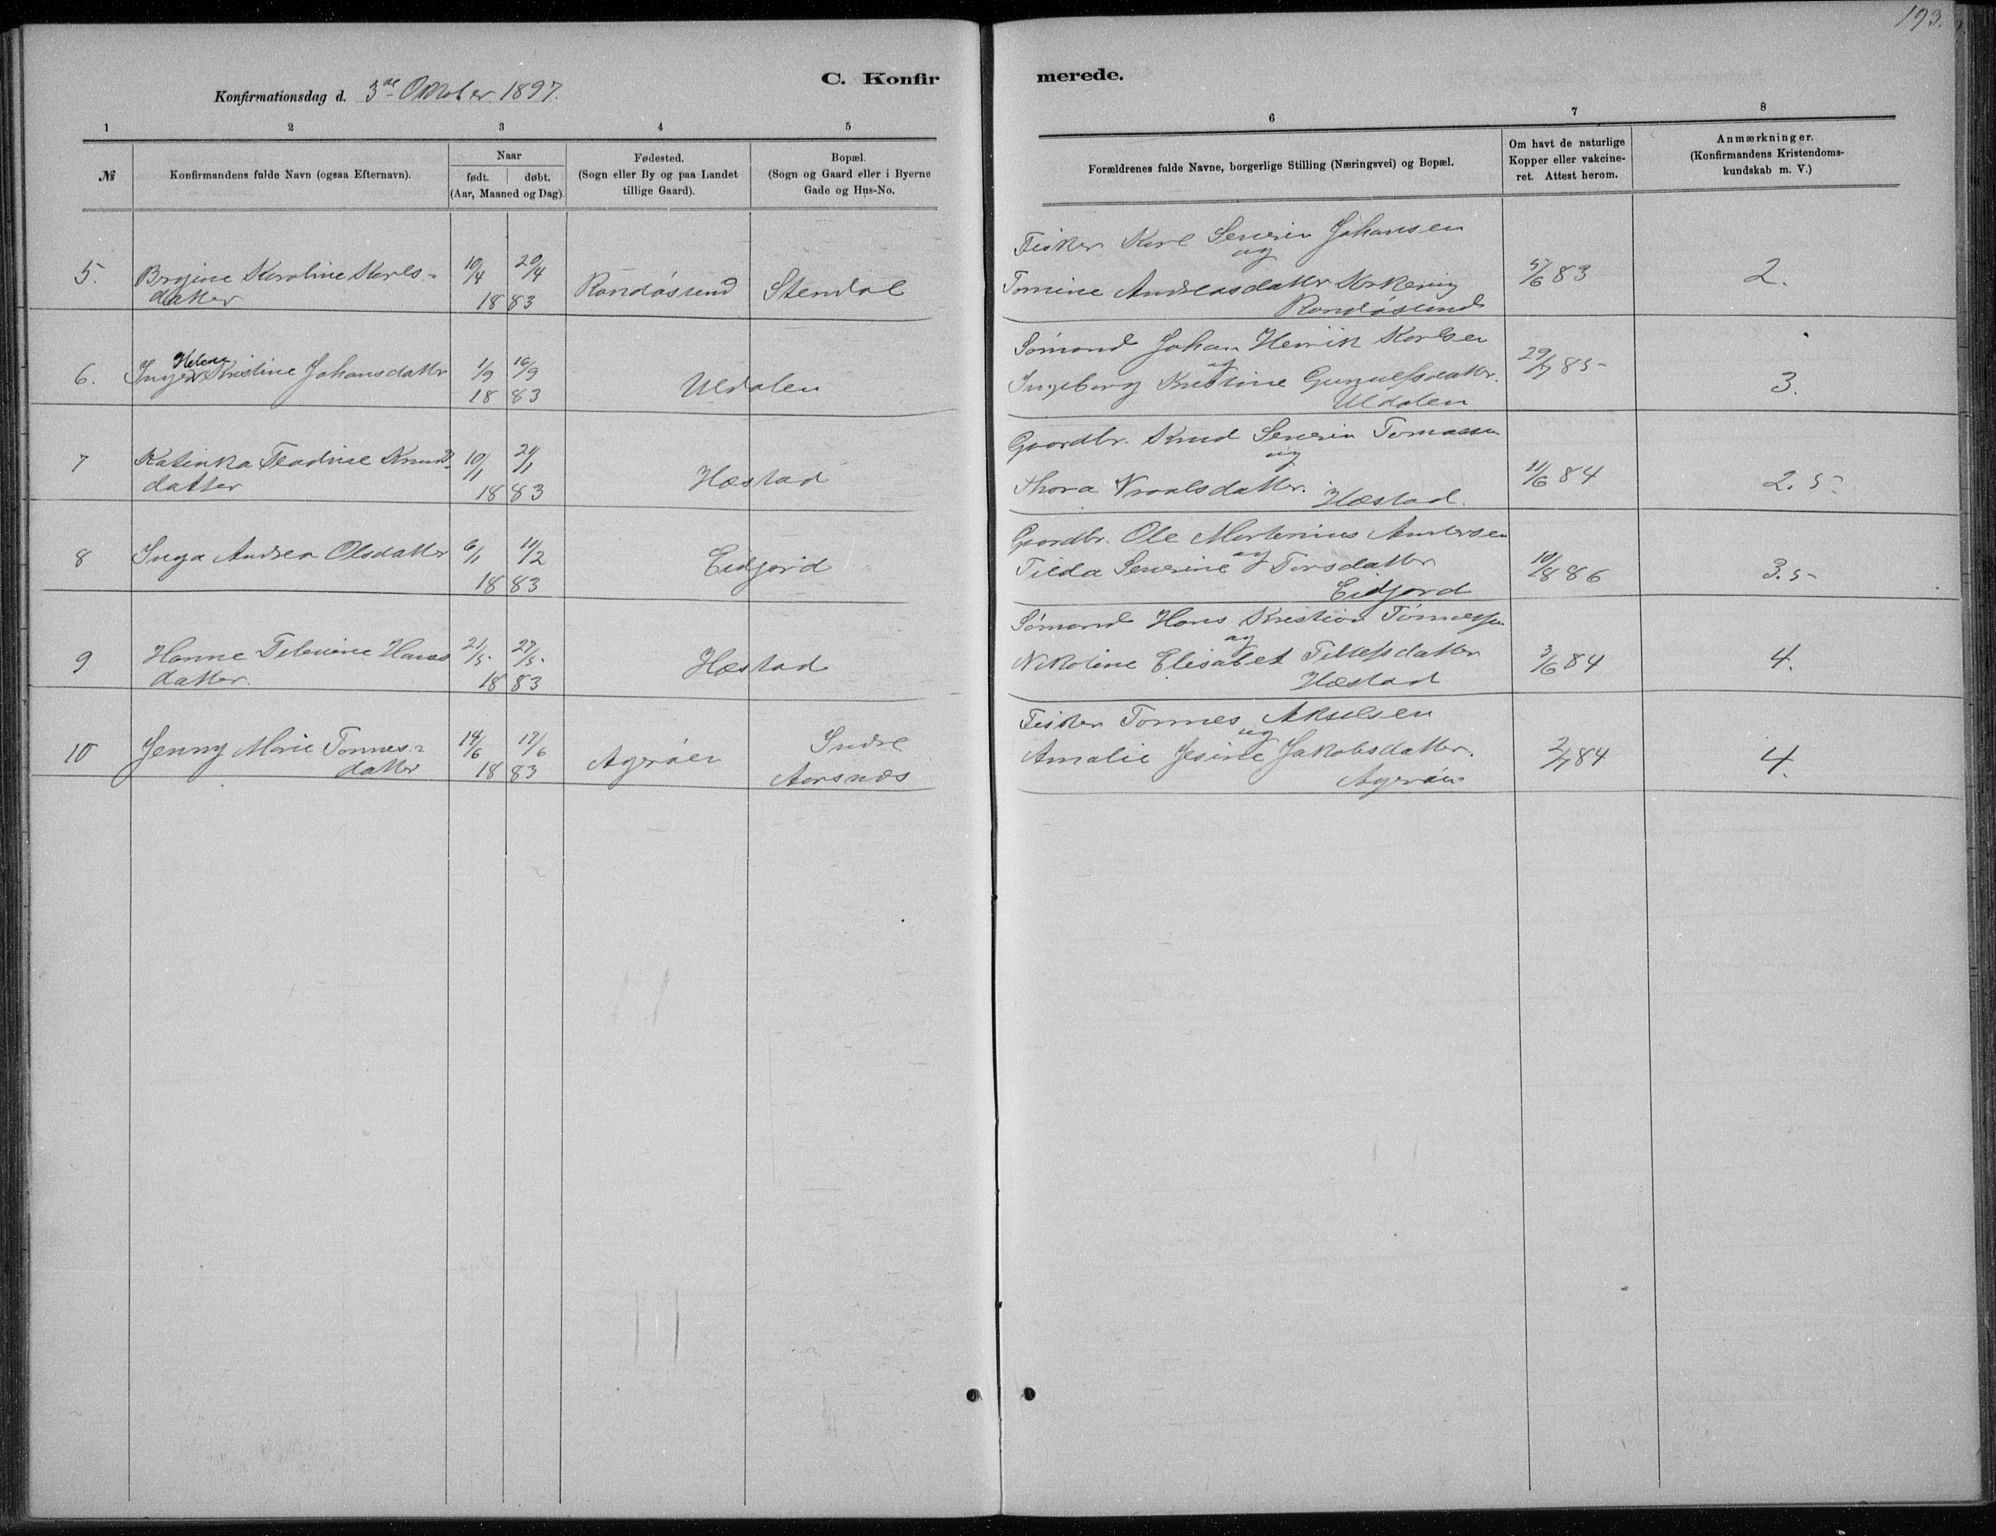 193.
C. Konfir
merede.
Konfirmationsdag d. 3de Oktober 1897.
1 2 3 4 5 6 7 8
№
Konfirmandens fulde Navn (ogsaa Efternavn).
Naar
født. døbt.
(Aar, Maaned og Dag).
Fødested.
(Sogn eller By og paa Landet
tillige Gaard).
Bopæl.
(Sogn og Gaard eller i Byerne
Gade og Hus-No.
Forældrenes fulde Navne, borgerlige Stilling (Næringsvei) og Bopæl.
Om havt de naturlige
Kopper eller vakcine-
ret. Attest herom.
Anmærkninger.
(Konfirmandens Kristendoms-
kundskab m. V.)
Fisker Karl Severin Johansen
og
5. Brgine Karoline Karls- 10/4 20/4 Randøsund Stendal Tomine Andreasdatter 5/6 83 2.
datter 18 83 Randøsund
Sømand Johan Henrik Karlsen
Helene
6. Inger Kristine Johansdatter 1/9 16/9 Uldalen og 29/7 85
18 83 Ingeborg Kristine Gunulfsdatter. 3.
Uldalen
Gaardbr. Knud Severin Tomassen
og
7 Katinka Teodine Knuds- 10/1 21/1 Hæstad Thora Vraalsdatter. 11/6 84 2.5
datter 18 83 Hæstad.
Gaardbr. Ole Martinius Andersen
og
8 Inga Andrea Olsdatter 6/1 11/2 Eidjord Tilda Severine Torsdatter 10/8 86 3.5
18 83 Eidjord
Sømand Hans Kristian Tønnessen
og
9 Hanne Televine Hans 21/5 27/5 Hæstad Nikoline Elisabet Tellefsdatter 3/6 84 4.
datter. 18 83 Hæstad
Fisker Tønnes Akselsen
og
10 Jenny Marie Tønnes- 14/6 17/6 Agerøen Indre Amalie Jesine Jakobsdatter. 2/7 84 4.
datter 18 83 Aarsnæs Agerøen